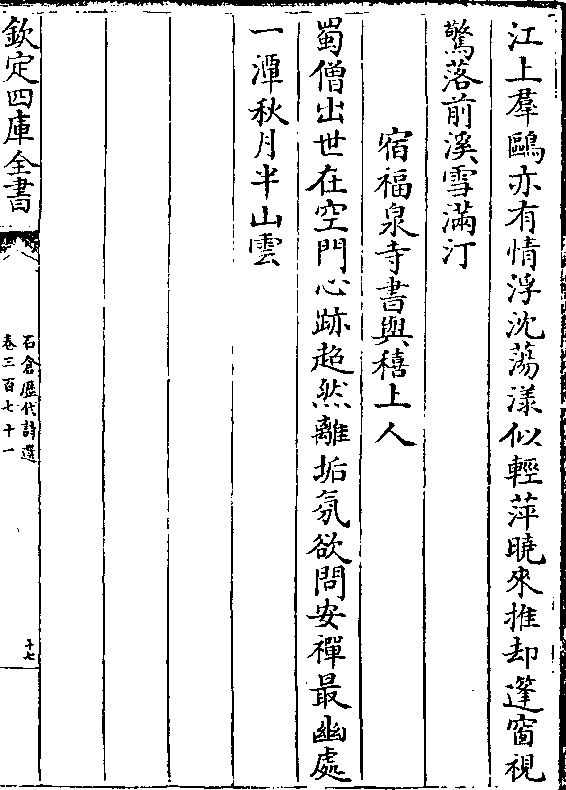 江上羣鷗亦有情浮沈蕩漾似輕萍曉來推却篷窗視
驚落前溪雪滿汀
宿福泉寺書與穡上人
蜀僧出世在空門心跡超然離垢氛欲問安禪最幽處
一潭秋月半山雲
欽定四庫全書
石倉歴代詩選
卷三百七十一
十七